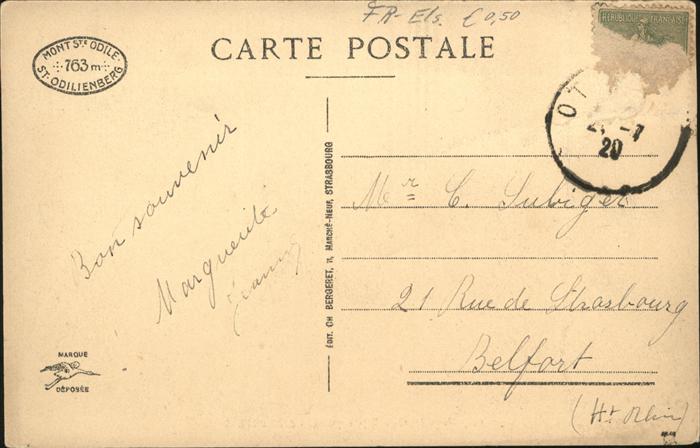 FR- Els. £ 0,50
RÉPUBLIQUE FRANÇAISE
MONT STE ODILE
763 m
ST. ODILIENBERG
CARTE POSTALE
OT
-7
20
Bon souvenir
Marguerite
ÉDIT. CH BERGERET, 11, MARCHÉ-NEUF, STRASBOURG
Mr C. Subiger
21 Rue de Strasbourg
Belfort
(Ht Rhin)
MARQUE
DÉPOSÉE